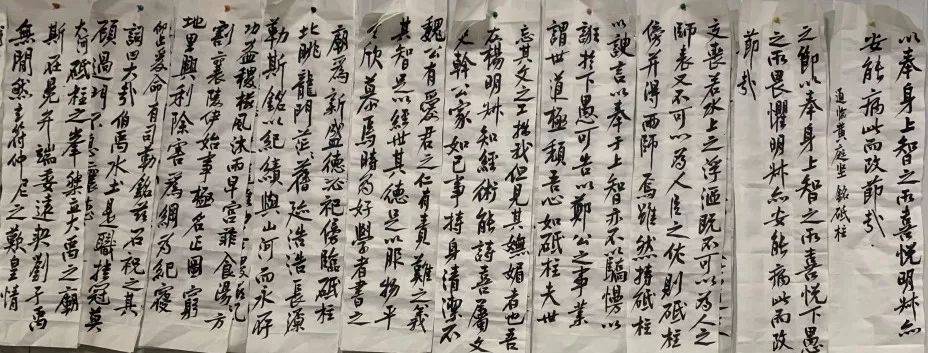 以奉身上智之所喜悦明叔亦
安能病此而改節哉
通临黄庭坚銘砥柱
之節以奉身上智之所喜悦下愚
之所畏懼明叔亦安能病此而改
節哉
文喪若水上之浮漚既不可以為人之
師表又不可以為人臣之佐則砥柱
傍弃得两師焉雖然持砥柱
以諛言以奉于上智亦不驕慢以
誑于下愚可告以鄭公之事業
謂世道極頹吾心如砥柱夫世
忘其文之工拙我但見其嫵媚者也吾
友楊明叔知經術能詩喜屬文
吏幹公家如已事持身清潔不
魏公有愛君之仁有責難之義
其智足以經世其德足以服物平
生欣慕焉時為好學者書之
廟為新盛德必祀傍臨砥柱
北眺龍門茫茫舊迹浩浩長源
勒斯銘以紀績與山河而永存
功益稷風沐雨卑宫菲食湯
割襄陵伊始事極名正圖窮
地里興利除害為綱為紀寢
為命有司勤銘兹石祝之其
詞曰大哉伯禹水土是職挂冠莫
顧過門不息
大河砥柱之峯桀立大禹之廟
斯在見弁端委遠契劉子禹
無閒然主符仲尼之歎皇情